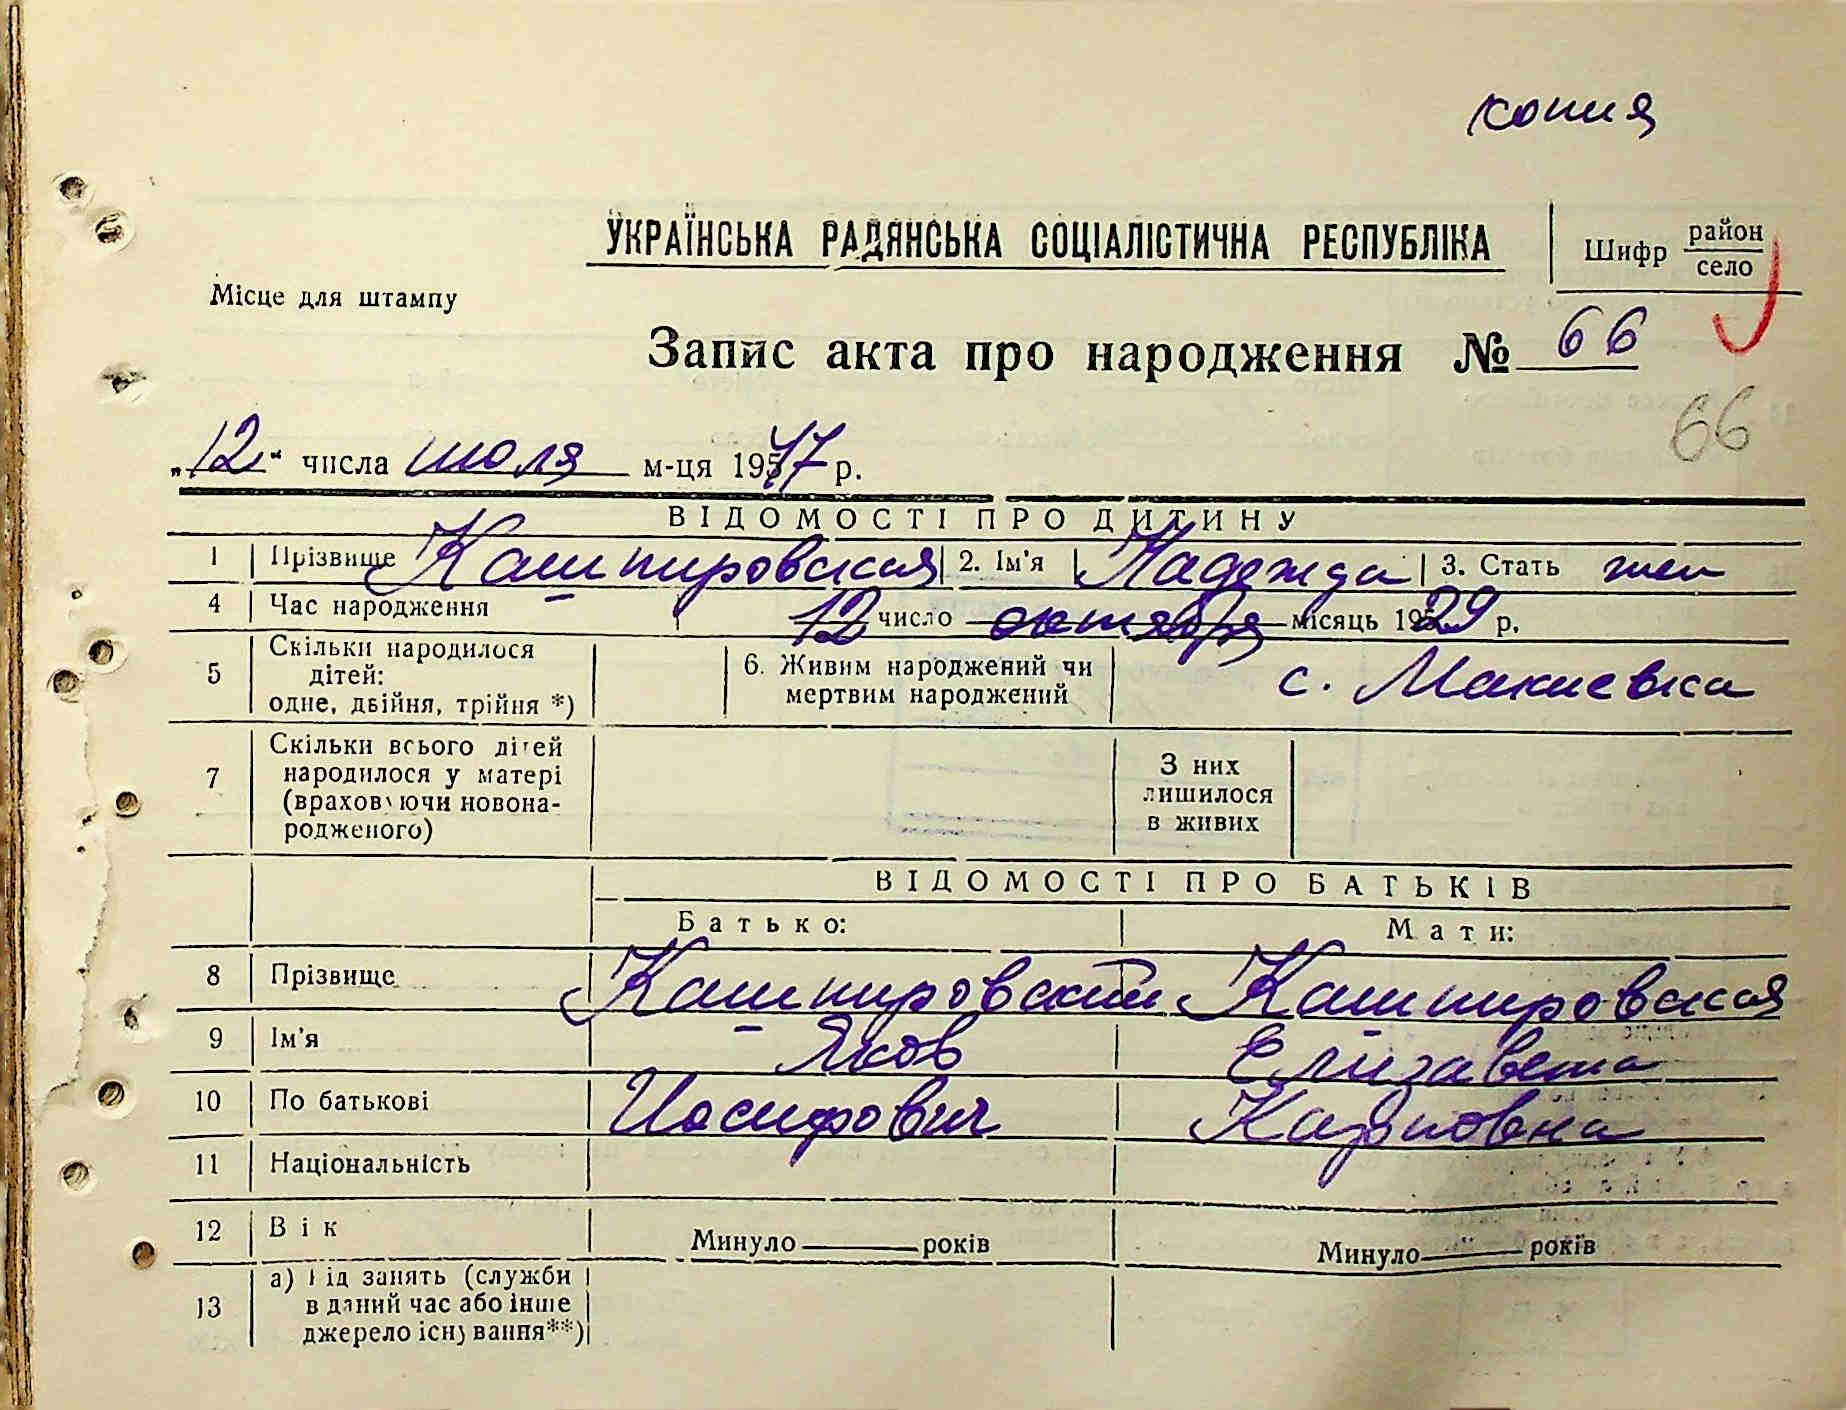 копия
УКРАЇНСЬКА РАДЯНСЬКА СОЦІАЛІСТИЧНА РЕСПУБЛІКА
Шифр район село
Місце для штампу
Запис акта про народження № 66
66
„12" числа июля м-ця 1947 р.
ВІДОМОСТІ ПРО ДИТИНУ
1 Прізвище Кашпировская 2. Ім'я Надежда 3. Стать жен
4 Час народження 12 число октября місяць 1929 р.
5 Скільки народилося дітей: одне, двійня, трійня *) 6. Живим народжений чи мертвим народжений с. Макиевка
7 Скільки всього дітей народилося у матері (враховуючи новонародженого) З них лишилося в живих
ВІДОМОСТІ ПРО БАТЬКІВ
Батько: Мати:
8 Прізвище Кашпировский Кашпировская
9 Ім'я Яков Елизавета
10 По батькові Иосифович Карповна
11 Національність
12 Вік Минуло років Минуло років
13 а) Рід занять (служби в даний час або інше джерело існування**)